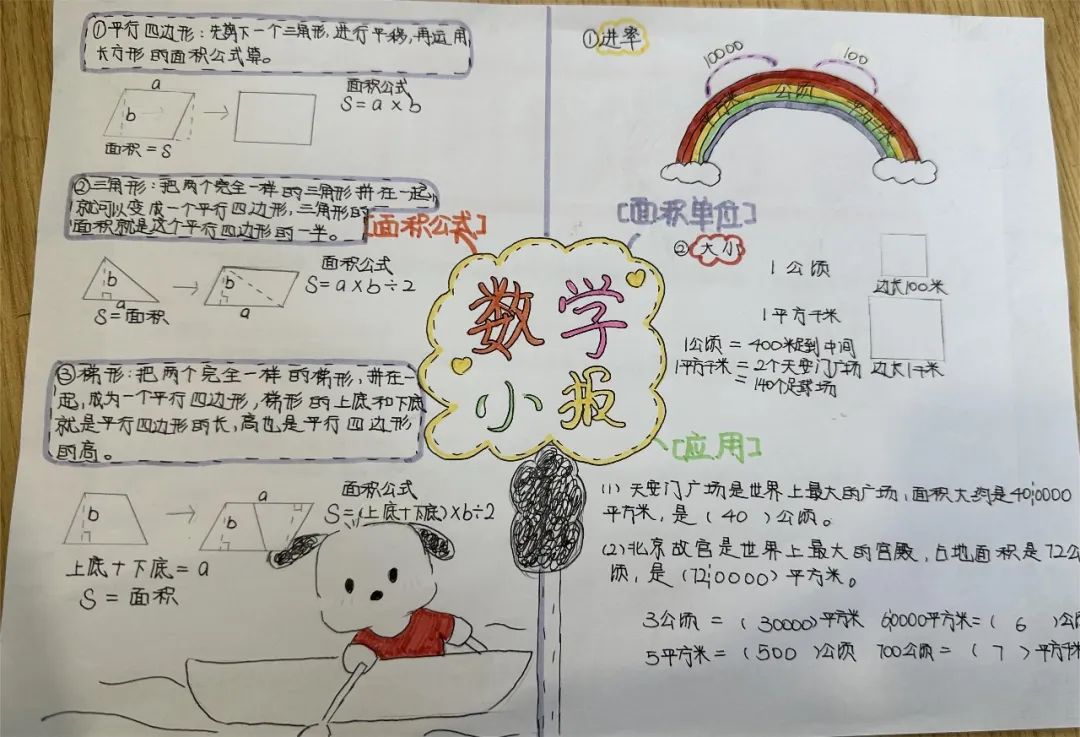 ①平行四边形：先剪下一个三角形，进行平移，再运用
长方形的面积公式算。
a
b
面积=S
面积公式
S=a×b
②三角形：把两个完全一样的三角形拼在一起，
就可以变成一个平行四边形，三角形的
面积就是这个平行四边形的一半。
[面积公式]
b
a
S=面积
b
a
面积公式
S=a×b÷2
③梯形：把两个完全一样的梯形，拼在一
起，成为一个平行四边形，梯形的上底和下底
就是平行四边形的长，高也是平行四边形
的高。
b
a
b
面积公式
S=(上底+下底)×b÷2
上底+下底=a
S=面积
数学
小报
①进率
10000
100
平方米
公顷
平方千米
[面积单位]
②大小
1公顷
边长100米
1平方千米
边长1千米
1公顷=400米足到中间
1平方千米=2个天安门广场
=140个足球场
[应用]
(1)天安门广场是世界上最大的广场，面积大约是400000
平方米，是(40)公顷。
(2)北京故宫是世界上最大的宫殿，占地面积是72公
顷，是(720000)平方米。
3公顷=(30000)平方米 60000平方米=(6)公
5平方米=(500)公顷 700公顷=(7)平方千米